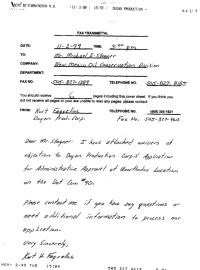 FAX TRANSMITTAL
DATE: 11-2-99 TIME: 2:00 pm
TO: Mr. Michael E. Stogner
COMPANY: New Mexico Oil Conservation Division
DEPARTMENT:
FAX NO.: 505-827-1389 TELEPHONE NO. 505-827-8185
You should receive 6 pages including this cover sheet. If you think you
did not receive all pages or you are unable to read any pages, please contact:
FROM: Kurt Fagrelius TELEPHONE NO.
Dugan Prod. Corp. Fax No.
Mr. Stogner: I have attached waivers of
objection to Dugan Production Corp's Application
for Administrative Approval of Unorthodox Location
on the Dot Com #90.
Please contact me if you have any questions or
need additional information to process our
application.
Very Sincerely,
Kurt H. Fagrelius
NOV-2-99 TUE 15:04